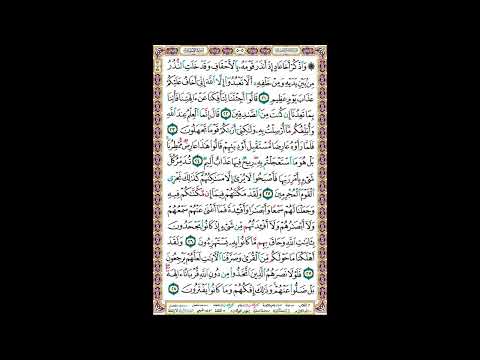 ۞ وَاذْكُرْ أَخَا عَادٍ إِذْ أَنذَرَ قَوْمَهُ بِالْأَحْقَافِ وَقَدْ خَلَتِ النُّذُرُ
مِن بَيْنِ يَدَيْهِ وَمِنْ خَلْفِهِ أَلَّا تَعْبُدُوا إِلَّا اللَّهَ إِنِّي أَخَافُ عَلَيْكُمْ
عَذَابَ يَوْمٍ عَظِيمٍ ٢١ قَالُوا أَجِئْتَنَا لِتَأْفِكَنَا عَنْ آلِهَتِنَا فَأْتِنَا
بِمَا تَعِدُنَا إِن كُنتَ مِنَ الصَّادِقِينَ ٢٢ قَالَ إِنَّمَا الْعِلْمُ عِندَ اللَّهِ
وَأُبَلِّغُكُم مَّا أُرْسِلْتُ بِهِ وَلَٰكِنِّي أَرَاكُمْ قَوْمًا تَجْهَلُونَ ٢٣
فَلَمَّا رَأَوْهُ عَارِضًا مُّسْتَقْبِلَ أَوْدِيَتِهِمْ قَالُوا هَٰذَا عَارِضٌ مُّمْطِرُنَا
بَلْ هُوَ مَا اسْتَعْجَلْتُم بِهِ رِيحٌ فِيهَا عَذَابٌ أَلِيمٌ ٢٤ تُدَمِّرُ كُلَّ
شَيْءٍ بِأَمْرِ رَبِّهَا فَأَصْبَحُوا لَا يُرَىٰ إِلَّا مَسَاكِنُهُمْ كَذَٰلِكَ نَجْزِي
الْقَوْمَ الْمُجْرِمِينَ ٢٥ وَلَقَدْ مَكَّنَّاهُمْ فِيمَا إِن مَّكَّنَّاكُمْ فِيهِ
وَجَعَلْنَا لَهُمْ سَمْعًا وَأَبْصَارًا وَأَفْئِدَةً فَمَا أَغْنَىٰ عَنْهُمْ سَمْعُهُمْ
وَلَا أَبْصَارُهُمْ وَلَا أَفْئِدَتُهُم مِّن شَيْءٍ إِذْ كَانُوا يَجْحَدُونَ
بِآيَاتِ اللَّهِ وَحَاقَ بِهِم مَّا كَانُوا بِهِ يَسْتَهْزِئُونَ ٢٦ وَلَقَدْ
أَهْلَكْنَا مَا حَوْلَكُم مِّنَ الْقُرَىٰ وَصَرَّفْنَا الْآيَاتِ لَعَلَّهُمْ يَرْجِعُونَ
٢٧ فَلَوْلَا نَصَرَهُمُ الَّذِينَ اتَّخَذُوا مِن دُونِ اللَّهِ قُرْبَانًا آلِهَةً
بَلْ ضَلُّوا عَنْهُمْ وَذَٰلِكَ إِفْكُهُمْ وَمَا كَانُوا يَفْتَرُونَ ٢٨